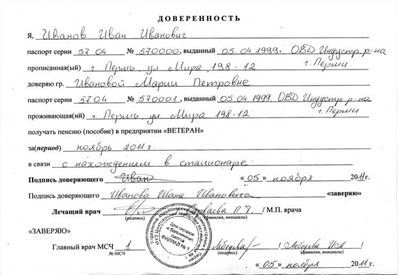 ДОВЕРЕННОСТЬ
Я, Иванов Иван Иванович
паспорт серии 57 04 № 570000, выданный 05.04.1999. ОВД Индустр. р-на
прописанный(ая) г Пермь, ул Мира, 198-12 г. Перми
доверяю гр. Ивановой Марии Петровне
паспорт серии 5704 № 570001. выданный 05.04.1999. ОВД Индустр. р-на
проживающий(ая) г. Пермь, ул Мира, 198-12 г. Перми
получать пенсию (пособие) в предприятии «ВЕТЕРАН»
за(период) ноябрь 2011г
в связи с нахождением в стационаре
Подпись доверяющего Иван «05» ноября 2011г.
Подпись доверяющего Иванова Ивана Ивановича «заверяю»
Лечащий врач / М.П. врача
(подпись) (фамилия, инициалы)
«ЗАВЕРЯЮ»
Главный врач МСЧ 1
(подпись) (фамилия, инициалы)
«05» ноября 2011г.